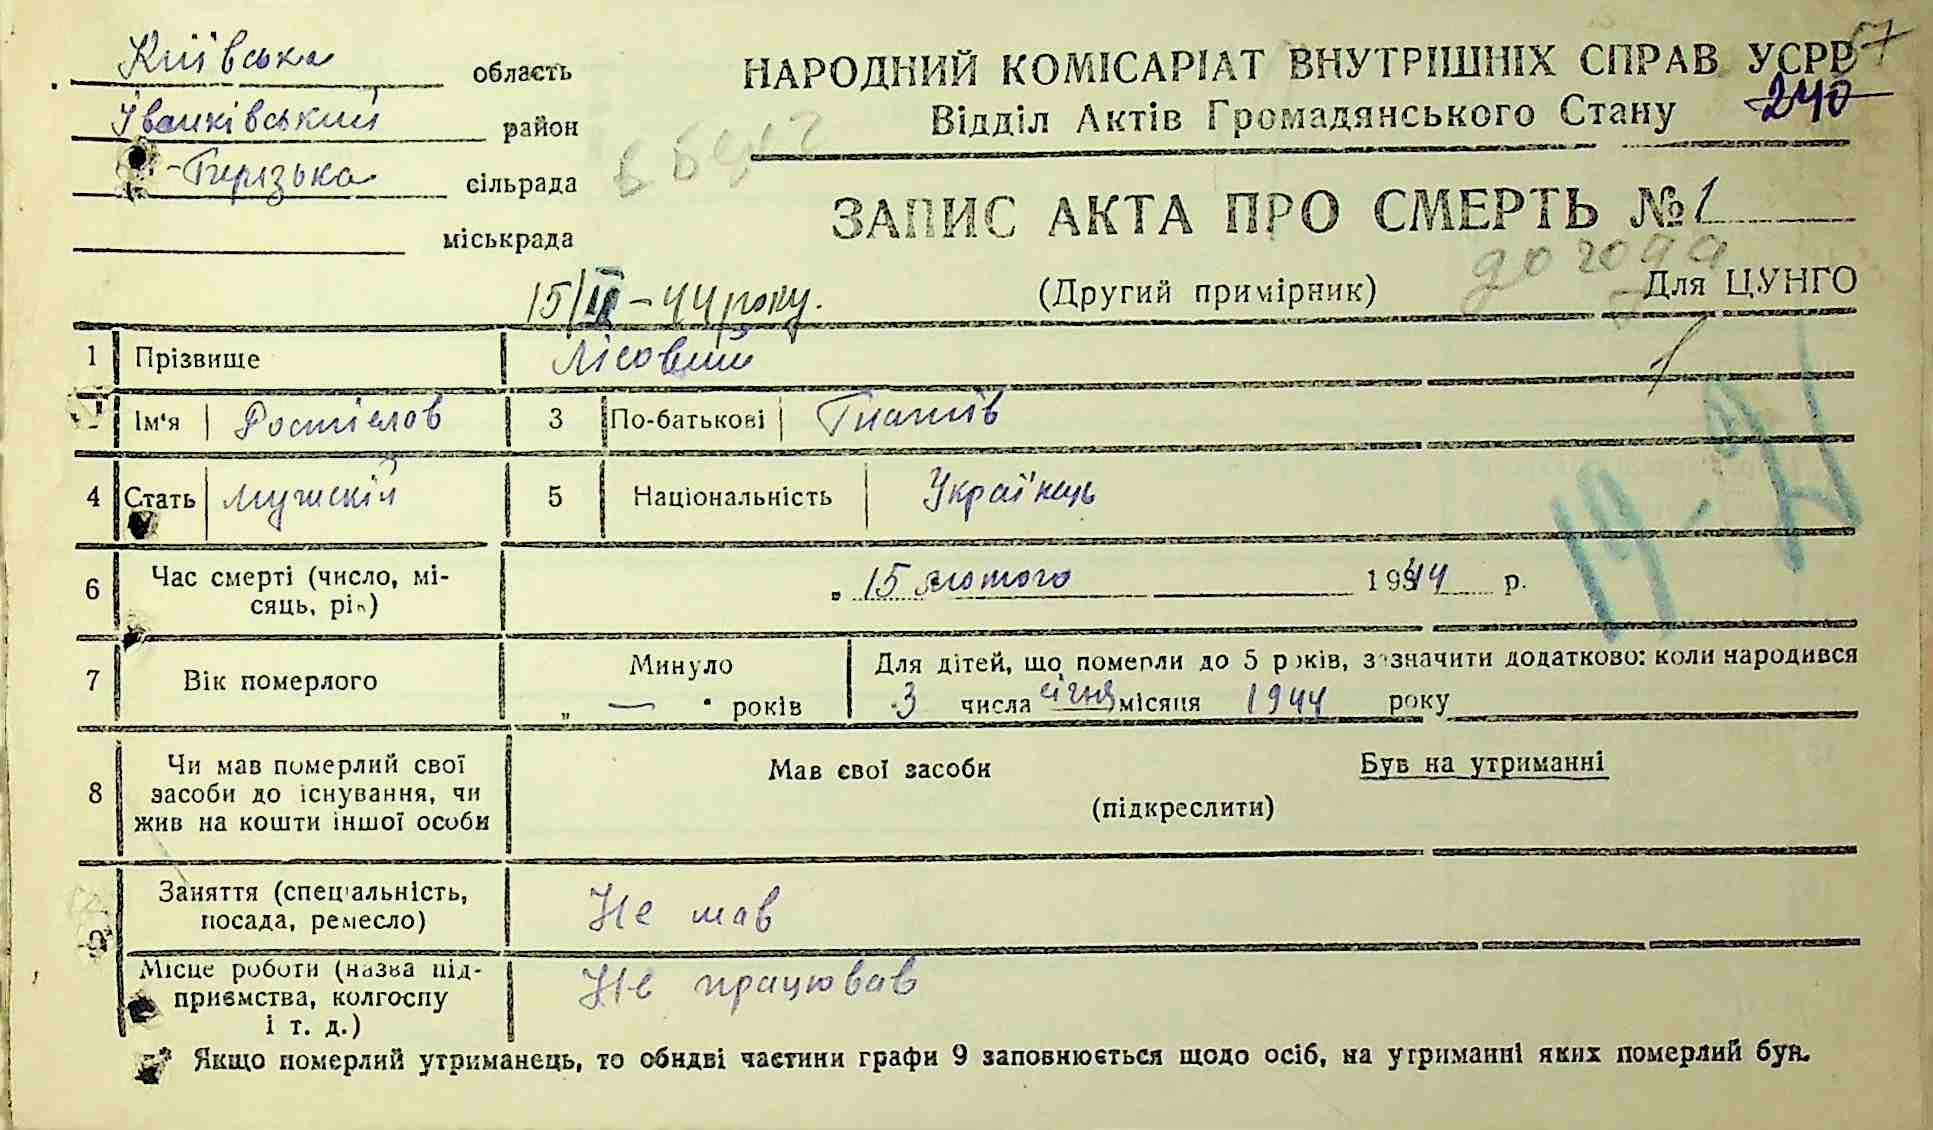 Київська область
Іванківський район
сільрада
міськрада
НАРОДНИЙ КОМІСАРІАТ ВНУТРІШНІХ СПРАВ УСРР
57
Відділ Актів Громадянського Стану
240
ЗАПИС АКТА ПРО СМЕРТЬ № 1
до года
15/II - 44 року.
(Другий примірник)
Для ЦУНГО
1 Прізвище Лісовий
Ім'я Ростіслов 3 По-батькові Гнатів
4 Стать мужскій 5 Національність Українець
19-21
6 Час смерті (число, мі-
сяць, рік) „ 15 лютого 1944 р.
7 Вік померлого Минуло „ — " років
Для дітей, що померли до 5 років, зазначити додатково: коли народився
3 числа січня місяця 1944 року
8 Чи мав померлий свої
засоби до існування, чи
жив на кошти іншої особи
Мав свої засоби Був на утриманні
(підкреслити)
9 Заняття (спеціальність,
посада, ремесло) Не мав
Місце роботи (назва під-
приємства, колгоспу
і т. д.) Не працював
Якщо померлий утриманець, то обидві частини графи 9 заповнюється щодо осіб, на утриманні яких померлий був.